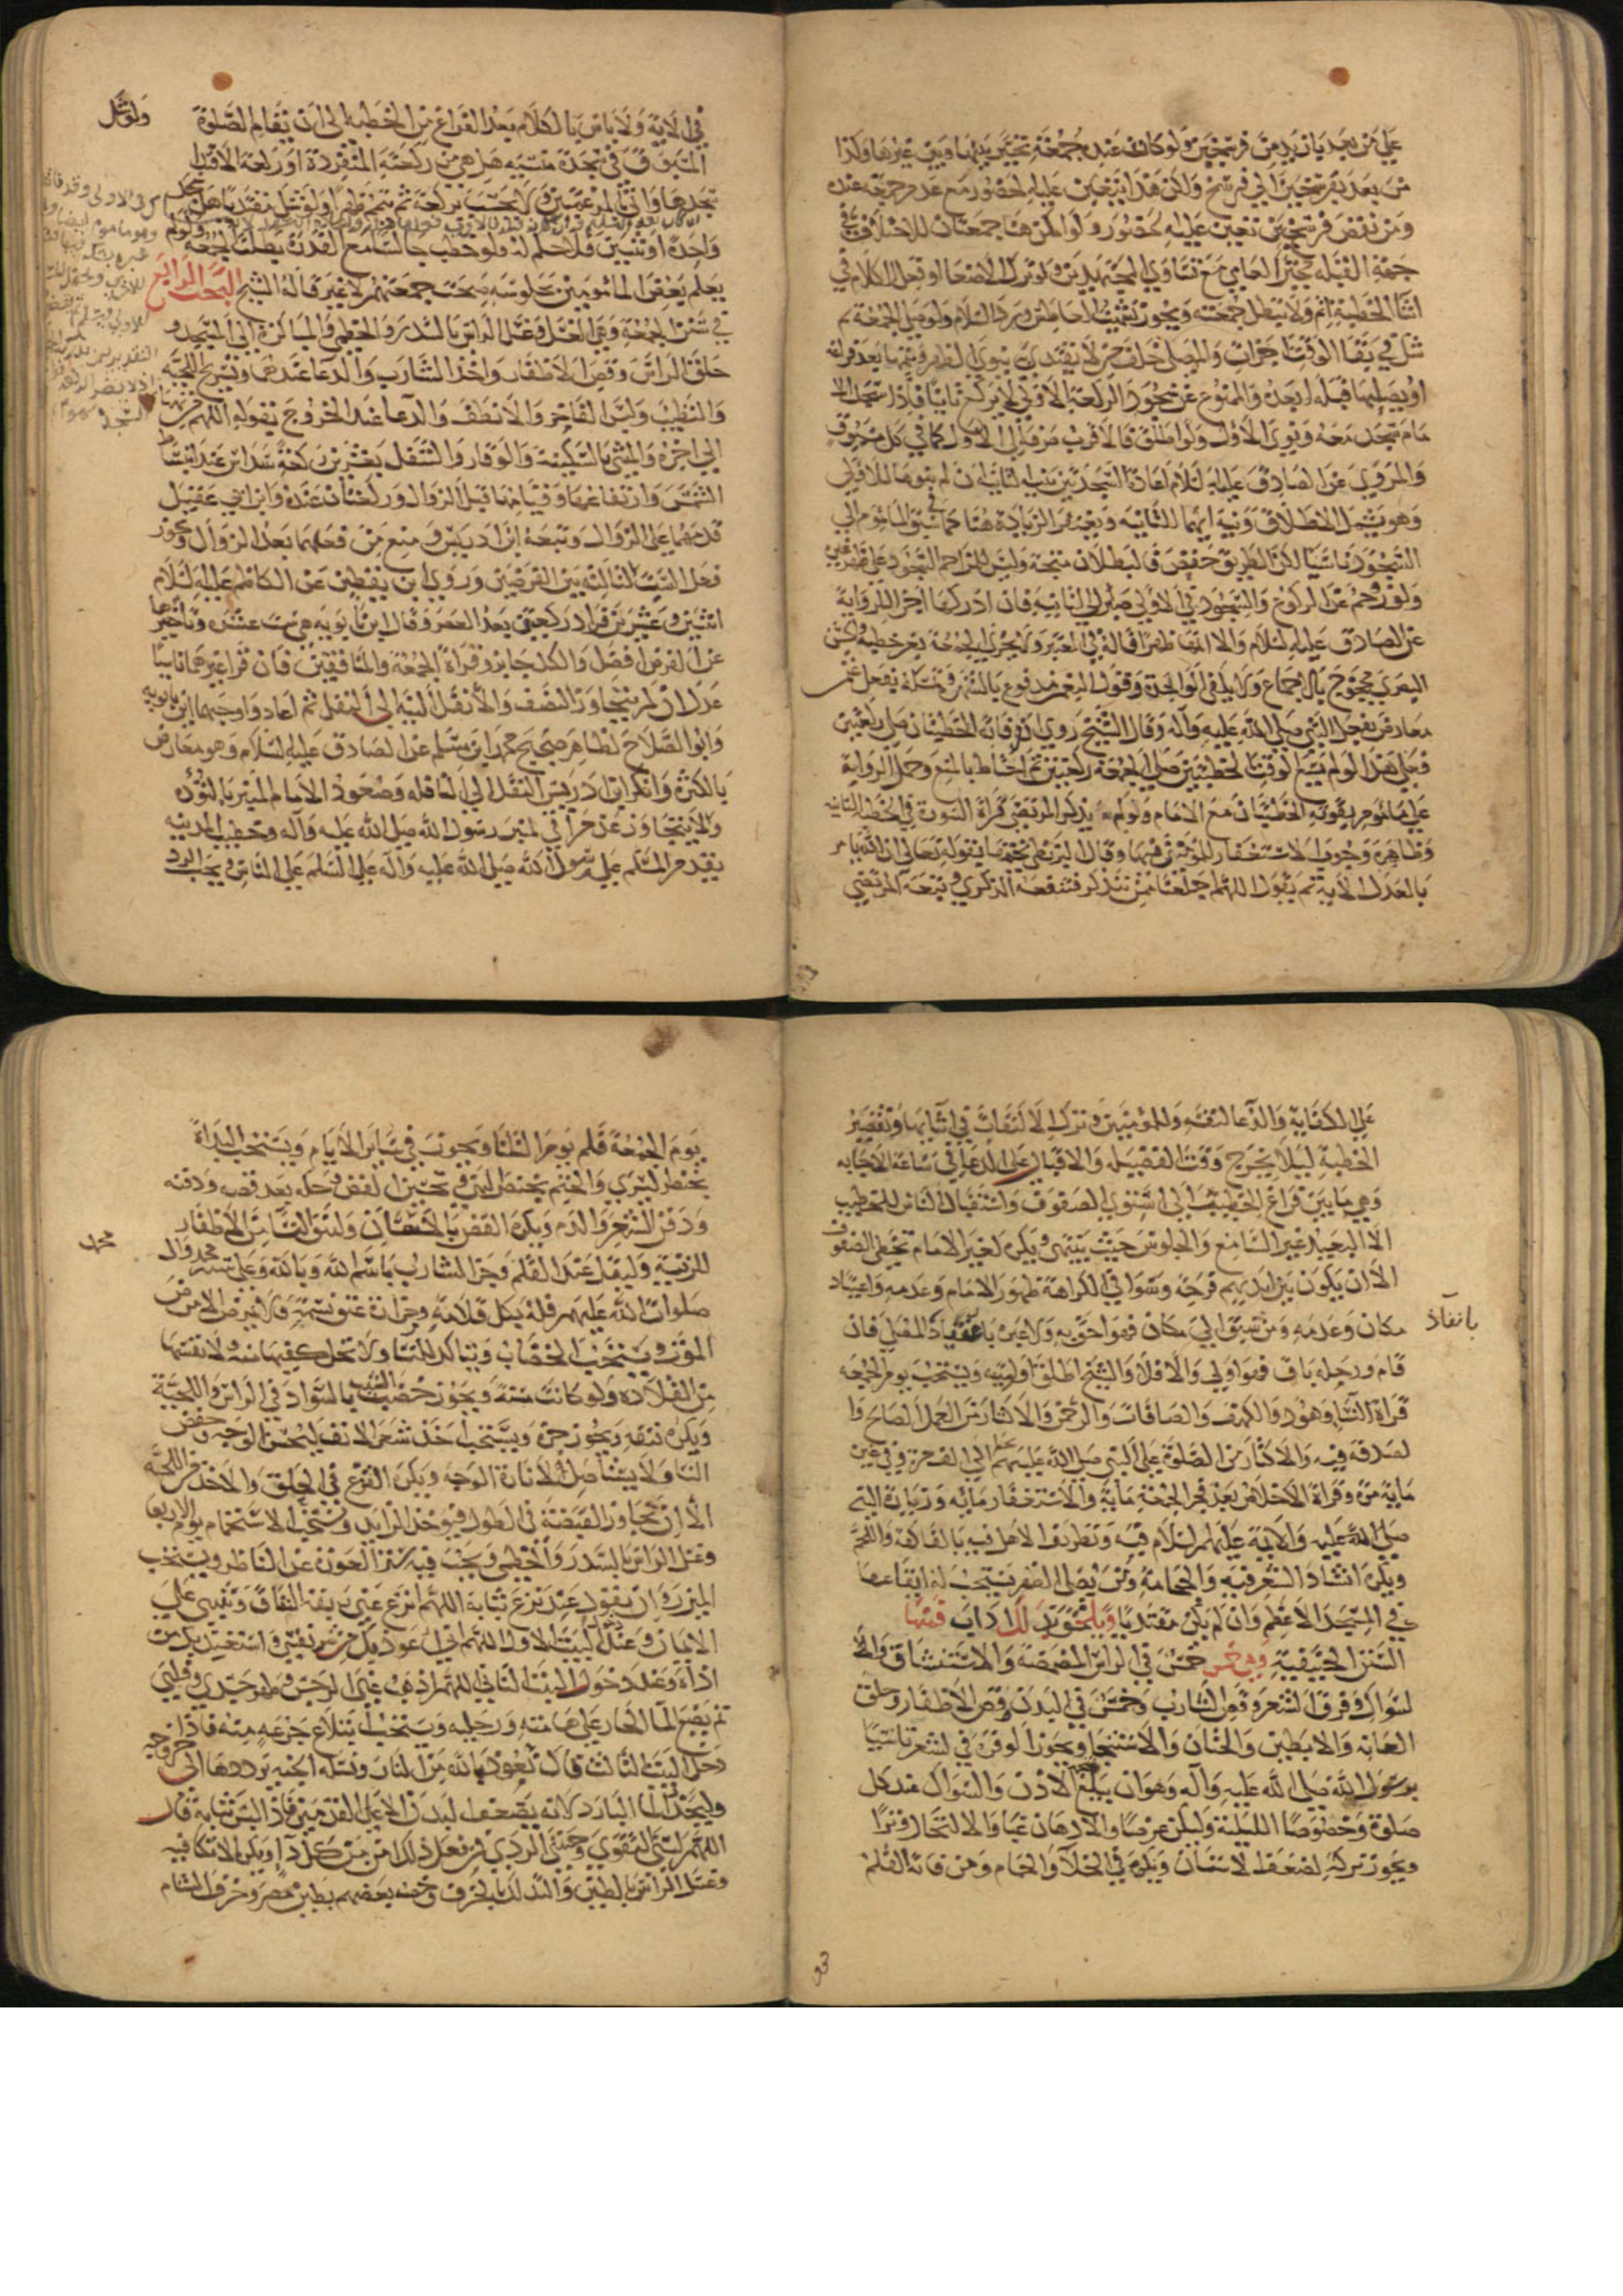 علي من بعد بازيد من فرسخين ولو كان عند جمعة تخير بينها وبين غيرها وكذا
من بعد بفرسخين الي فرسخ ولكن هنا يتعين عليه الحضور مع عدم جمعة عنده
ومن نقص فرسخين تعين عليه الحضور ولو امكن هنا جمعتان للاختلاف في
جهة القبله تخير العامي مع تساوي المجتهدين ولو ترك الاصغا او فعل الكلام في
اثنا الخطبة اثم ولا تبطل جمعته ويجوز تسميت العاطس ورد السلام ولو صلي الجمعة ثم
شك في بقا الوقت اجزات والمصلي خلف من لا يقتدي به ينوي الظهر ويتمها بعد فراغه
او يصليها قبله او بعده والممنوع عن سجود الركعة الاولي لا يركع ثانيا فاذا سجد الا
مام سجد معه ونوي الاولي ولو اطلق فالاقرب صرفه الي الاول كما في كل مسبوق
والمروي عن الصادق عليه السلام اعادة السجدتين بنية الثانية ان لم ينوهما للاولي
وهو يشمل الاطلاق ونية انهما للثانيه وبغتفر الزيادة هنا كما سبق الماموم الي
السجود ناسيا لكن الطريق حفص فالبطلان متجه وليس للمزاحم السجود علي ظهر غيره
ولو زوحم عن الركوع والسجود في الاولي صبر الي الثانية فان ادركها اجزا للرواية
عن الصادق عليه السلام والا اتمها ظهرا قاله في المعتبر ولا يجزي الجمعة بغير خطبة والحسن
البصري محجوج بالاجماع ولا يكفي الواحدة وقول البعض مدفوع بالشهرة وتمسكه بفعل عثمن
معارض بفعل النبي صلي الله عليه وآله وقال الشيخ روي ان من فاته الخطبتان صلي ركعتين
فعلي هذا لو لم يسع الوقت الخطبتين صلي الجمعة ركعتين ثم احتاط بالمنع وحمل الرواية
علي ماموم يفوته الخطبتان مع الامام ولو لم يذكر المرتضي قراة السورة في الخطبة الثانيه
وظاهره وجوب الاستغفار للمؤمنين فيها وقال البزنطي يختمها بقوله تعالي ان الله يامر
بالعدل الاية ثم يقول اللهم اجعلنا ممن تذكر فتنفعه الذكري وتبعه المرتضي
في الاية ولا باس بالكلام بعد الفراغ من الخطبه الي ان تقام الصلوة
ولو شك
المسبوق في سجدة منسيه هل هي من ركعته المنفردة او ركعة الاقتدا
سجدها واتي بالمرغمتين ولا تحتسب بركعة ثم تتمه ظهرا ولو شك مقتديا هل سجد
واحدة او ثنتين فلا حكم له ولو خطب جالسا مع القدرة بطلت الجمعة ولو لم
يعلم بعض المامومين بجلوسه صحت جمعتهم لا غير قاله الشيخ البحث الرابع
في سنن الجمعة وهي الغسل وغسل الراس بالسدر والخطمي والمباكرة الي المسجد و
حلق الراس وقص الاظفار واخذ الشارب والدعا عندهما وتسريح اللحية
والتطيب ولبس الفاخر والانظف والدعا عند الخروج بقوله اللهم من تهيا
الي اخره والمشي بالسكينة والوقار والتنفل بعشرين ركعة سداس عند انبساط
الشمس وارتفاعها وقيامها قبل الزوال وركعتان عنده وابن ابي عقيل
قدمهما علي الزوال وتبعه ابن ادريس ومنع من فعلهما بعد الزوال ويجوز
فعل الست الثالثه بين الفرضين وروي ابن يقطين عن الكاظم عليه السلام
اثنين وعشرين فزاد ركعتين بعد العصر وقال ابن بابويه هي ست عشره وتاخيرها
عن الفرض افضل والكل جايز وقراة الجمعة والمنافقين فان قرا غيرهما ناسيا
عدل ان لم يتجاوز النصف والا نقل النية الي النفل ثم اعاد واوجبهما ابن بابويه
وابو الصلاح لظاهر صحيح محمد ابن مسلم عن الصادق عليه السلام وهو معارض
بالكثرة وانكر ابن ادريس النقل الي النافله وصعود الامام المنبر بالتؤده
ولا يتجاوز عن حرا في لمنبر رسول الله صلي الله عليه وآله وخطيب المدينه
بقدم المسلم علي رسول الله صلي الله عليه وآله علي السلم علي الناس ويجب الرد
علي الكفاية والدعا لنفسه وللمؤمنين وترك الالتفات في اثنايها وتقصير
الخطبة ليلا يخرج وقت الفضيله والاقبال علي الدعا في ساعة الاجابه
وهي ما بين فراغ الخطيب الي استوي الصفوف واستقبال الناس للخطيب
الا البعيد غير السامع والجلوس حيث ينتهي ويكره لغير الامام تخطي الصفوف
الا ان يكون بين ايديهم فرجه وسوا في الكراهة ظهور الامام وعدمه واعتياد
مكان وعدمه ومن سبق الي مكان فهو احق به ولا عبرة
بانفاذ
المصلي فان
قام ورحله باق فهو اولي والا فلا والشيخ اطلق اولويته ويستحب يوم الجمعه
قراة النسا وهود والكهف والصافات والرحمن والاكثار من العمل الصالح وا
لصدقه فيه والاكثار من الصلوة علي النبي صلي الله عليه وآله الي الف مرة وفي غيره
ماية مرة وقراة الاخلاص بعد فجر الجمعة ماية والاستغفار مايه وزيارة النبي
صلي الله عليه والائمة عليهم السلام فيه وتطريف الاهل فيه بالفاكهة واللحم
ويكره انشاد الشعر فيه والحجامة ومن يصلي الظهر فيستحب له ايقاعها
في المسجد الاعظم وان لم يكن مقتديا ويلحق بذلك اداب فمنها
السنن الحنيفية وهي خمس خمس في الراس المضمضة والاستنشاق وا
لسواك وفرق الشعر وقص الشارب وخمس في البدن وقص الاظفار وحلق
العانه والابطين والختان والاستنجا ويجوز الوفرة في الشعر تاسيا
برسول الله صلي الله عليه وآله وهو ان يبلغ شحمة الاذن والسواك عند كل
صلوة وخصوصا الليلية وليكن عرضا والادهان غبا والاكتحال وترا
ويجوز تركه لضعف الاسنان ويكره في الخلا والحمام ومن فاته القلم
يوم الجمعة قلم يوم الثلثا ويجوز في ساير الايام ويستحب البداة
بخنصر اليسري والختم بخنصر اليمني وتحسين القص وحكه بعد قصه ودفنه
ودفن الشعر والدم ويكره القص بالاسنان وليترك النسا من الاظفار
للزينة وليقل عند القلم وجز الشارب باسم الله وبالله وعلي سنة محمد وال
محمد
صلوات الله عليهم فله بكل قلامة وجزازة عتق نسمة ولا يمرض الا مرض
الموت ويستحب الخضاب ويتاكد للنسا ولا تخل كفيها منه ولا نفسها
من القلاده ولو كانت مسنة ويجوز خضب الشيب بالسواد في الراس واللحية
ويكره نتفه ويجوز جزه ويستحب اخذ شعر الانف ليحسن الوجه وخفض
النسا ولا يستاصل لانارة الوجه ويكره القزع في الحلق والاخذ من اللحية
الا ان تجاوز القبضة في الطول فيؤخذ الزايد ويستحب الاستحمام يوم الاربعا
وغسل الراس بالسدر والخطمي ويجب فيه ستر العورة عن الناظر ويستحب
الميزر وان يقول عند نزع ثيابه اللهم انزع عني ربقة النفاق وثبتني علي
الايمان وعند دخول البيت الاول اللهم اني اعوذ بك من شر نفسي واستعيذ بك من
اذاه وعند دخول البيت الثاني اللهم اذهب عني الرجس وطهر جسدي وقلبي
ثم يضع الما الحار علي هامته ورجليه ويستحب ابتلاع جرعة منه فاذا
دخل البيت الثالث قال نعوذ بالله من النار ونسله الجنه يرددها الي خروجه
وليجتنب الما البارد لانه يضعف البدن الا علي القدمين فاذا لبس ثيابه قال
اللهم البسني التقوي وجنبني الردي فمن فعل ذلك امن من كل داء ويكره الاتكا فيه
وغسل الراس بالطين والتدلك بالخزف وخصه بعضهم بطين مصر وخزف الشام